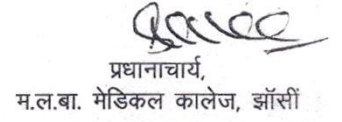 प्रधानाचार्य,
म.ल.बा. मेडिकल कालेज, झॉसीं